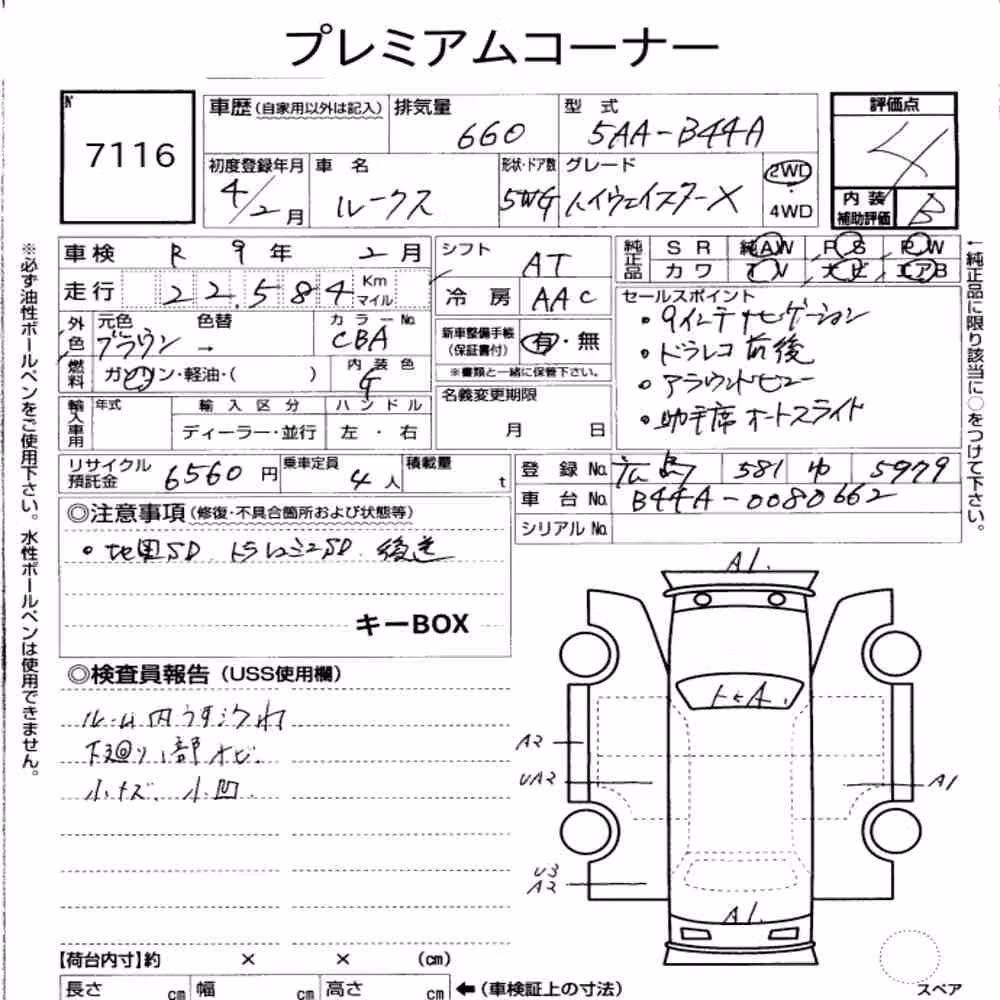 プレミアムコーナー
№ 7116
車歴（自家用以外は記入） 排気量 660 型 式 5AA-B44A
評価点 4
初度登録年月 4/2月 車 名 ルークス 形状・ドア数 5WG グレード ハイウェイスターX 2WD・4WD
内装補助評価 B
車検 R 9年 2月 シフト AT
純正品 SR 純AW PS PW
カワ TV ナビ エアB
走行 22,584 Km マイル 冷房 AAC
外色 元色 ブラウン 色替 → カラーNo. CBA
新車整備手帳（保証書付） 有・無
※書類と一緒に保管下さい。
燃料 ガソリン・軽油・（ ） 内装色 G
セールスポイント
・9インチナビゲーション
・ドラレコ前後
・アラウンドビュー
・助手席オートスライド
名義変更期限 月 日
輸入車用 年式 輸入区分 ディーラー・並行 ハンドル 左・右
リサイクル預託金 6560円 乗車定員 4人 積載量 t
登録No. 広島 581 ゆ 5979
車台No. B44A-0080662
シリアルNo.
◎注意事項（修復・不具合箇所および状態等）
・地図SD ドラレコSD 後送
キーBOX
◎検査員報告（USS使用欄）
ルーム内うすヨゴれ
下廻り1部サビ.
小キズ. 小凹.
A1.
A2
UA2
A1
U3
A2
A1.
【荷台内寸】約 × × （cm）
長さ cm 幅 cm 高さ cm ←（車検証上の寸法）
スペア
※必ず油性ボールペンをご使用下さい。水性ボールペンは使用できません。
←純正品に限り該当に○をつけて下さい。